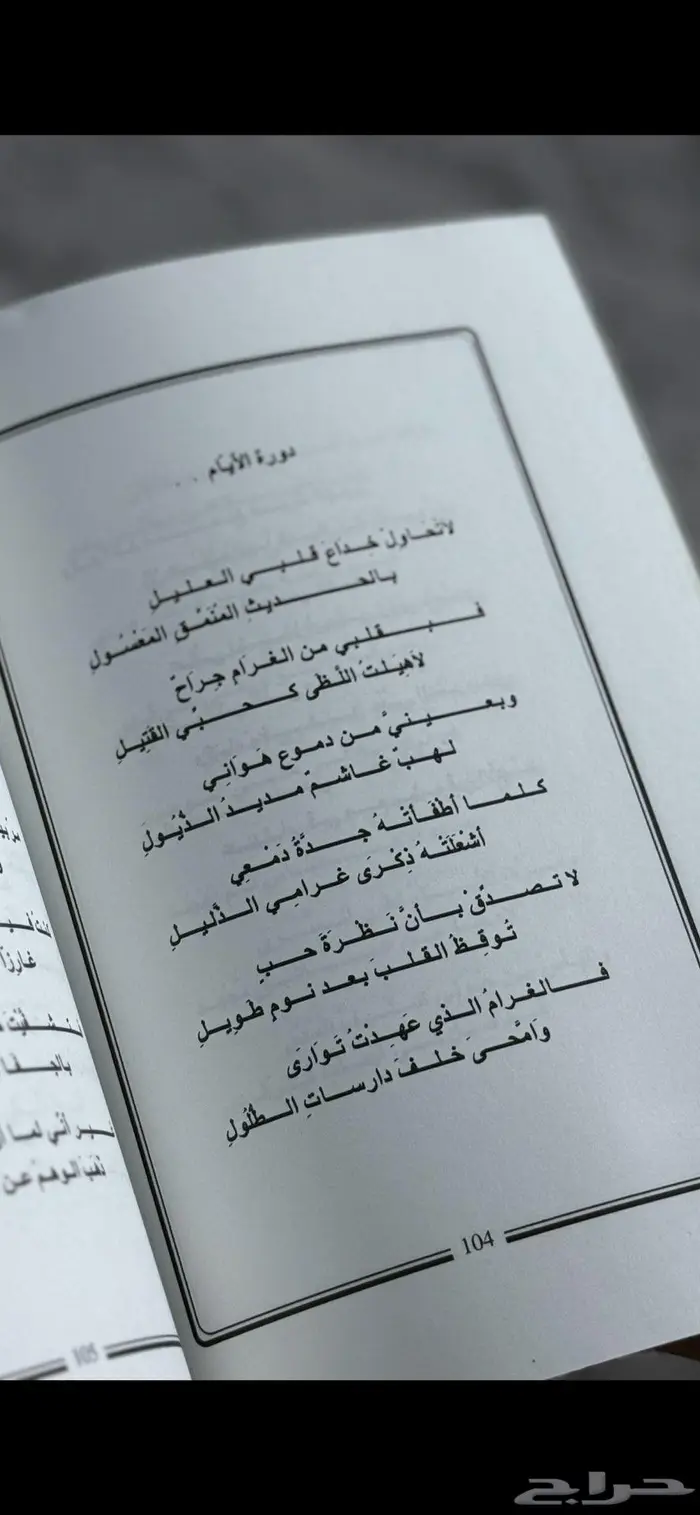 دورة الأيّام . .
لاتُحَاولْ خِدَاعَ قلبي العليلِ
بالحديثِ المُنَمَّقِ المَعْسُولِ
فبقلبي من الغرَامِ جِرَاحٌ
لاَهِبَاتُ اللَّظَى كحبّي القَتِيلِ
وبعينيَّ من دموع هَوَانِي
لهبٌ غاشمٌ مديدُ الذُّيُولِ
كلما أطفَأتْهُ جِدَّةُ دَمْعِي
أشْعَلَتْهُ ذِكْرَى غرامِي الذَّليلِ
لا تصدّقْ بأنَّ نَظْرَةَ حبٍ
تُوقِظُ القلبَ بعد نوم طَوِيلِ
فالغرامُ الذي عَهِدْتُ تَوَارَى
وَامَّحَىَ خلفَ دارساتِ الطُّلُولِ
104
غارزاً
بالجفا
أني لما
عن
105
حراج